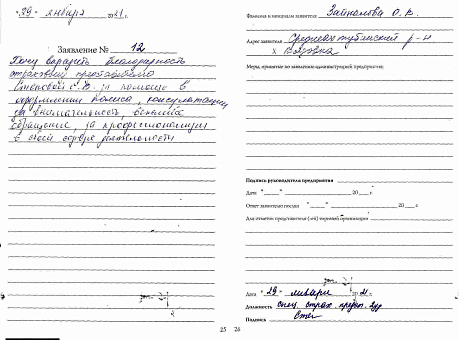 "29" января 2021 г.
Заявление № 12
Хочу выразить благодарность
страховому представителю
Стеновой С.В. за помощь в
оформлении полиса, консультации
за внимательность, вежливое
обращение, за профессионализм
в своей сфере деятельности
25
Фамилия и инициалы заявителя Зайналова О.В.
Адрес заявителя Среднеахтубинский р-н
х Вязовка
Меры, принятые по заявлению администрацией предприятия:
Подпись руководителя предприятия
Дата "___" ______ 20___ г.
Ответ заявителю послан "___" ______ 20___ г.
Для отметок представителя (-ей) торговой организации
Дата "29" января 2021 г.
Должность спец. страх. предст. 2ур
Подпись
26